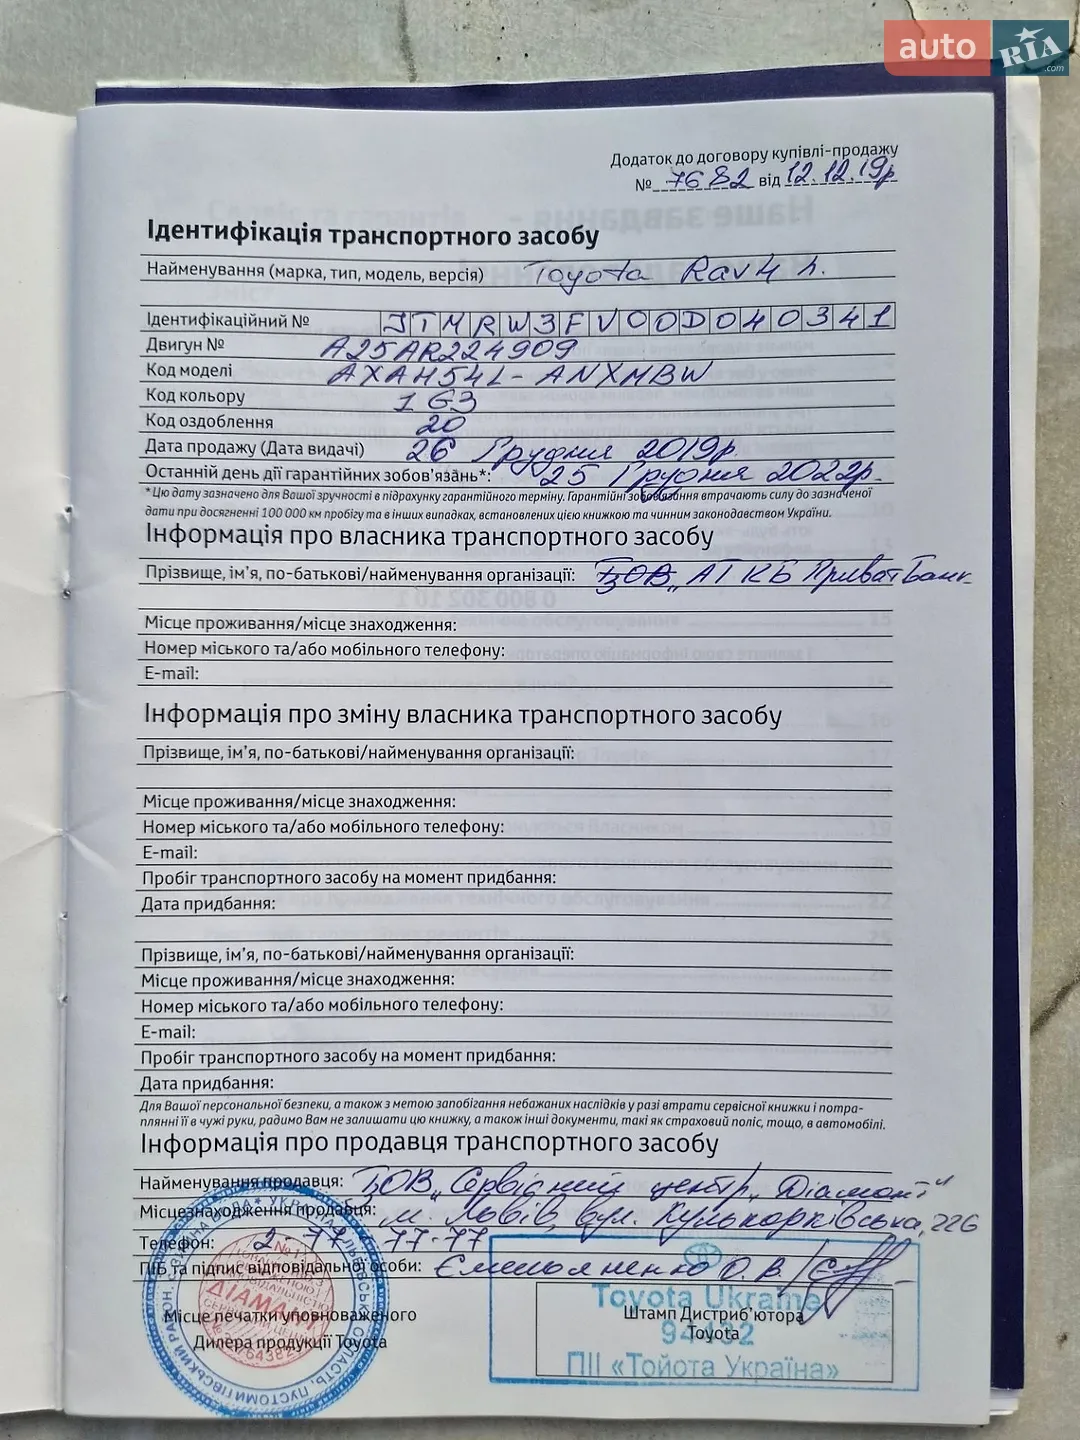 auto RIA .com
Додаток до договору купівлі-продажу
№ 7682 від 12.12.19р
Ідентифікація транспортного засобу
Найменування (марка, тип, модель, версія) Toyota Rav4 h.
Ідентифікаційний № JTMRW3FV00D040341
Двигун № A25AR224909
Код моделі AXAH54L-ANXMBW
Код кольору 1G3
Код оздоблення 20
Дата продажу (Дата видачі) 26 Грудня 2019р.
Останній день дії гарантійних зобов'язань*: 25 Грудня 2022р.
* Цю дату зазначено для Вашої зручності в підрахунку гарантійного терміну. Гарантійні зобов'язання втрачають силу до зазначеної
дати при досягненні 100 000 км пробігу та в інших випадках, встановлених цією книжкою та чинним законодавством України.
Інформація про власника транспортного засобу
Прізвище, ім'я, по-батькові/найменування організації: ТЗОВ „ АТ КБ ПриватБанк
Місце проживання/місце знаходження:
Номер міського та/або мобільного телефону:
E-mail:
Інформація про зміну власника транспортного засобу
Прізвище, ім'я, по-батькові/найменування організації:
Місце проживання/місце знаходження:
Номер міського та/або мобільного телефону:
E-mail:
Пробіг транспортного засобу на момент придбання:
Дата придбання:
Прізвище, ім'я, по-батькові/найменування організації:
Місце проживання/місце знаходження:
Номер міського та/або мобільного телефону:
E-mail:
Пробіг транспортного засобу на момент придбання:
Дата придбання:
Для Вашої персональної безпеки, а також з метою запобігання небажаних наслідків у разі втрати сервісної книжки і потра-
плянні її в чужі руки, радимо Вам не залишати цю книжку, а також інші документи, такі як страховий поліс, тощо, в автомобілі.
Інформація про продавця транспортного засобу
Найменування продавця: ТЗОВ „Сервісний центр „Діамант"
Місцезнаходження продавця: м. Львів, вул. Кульпарківська, 226
Телефон: 2-97-77-77
ПІБ та підпис відповідальної особи: Ємельяненко О.В.
Місце печатки уповноваженого
Дилера продукції Toyota
ДІАМАНТ
Toyota Ukraine
Штамп Дистриб'ютора
Toyota
94432
ПІІ «Тойота Україна»